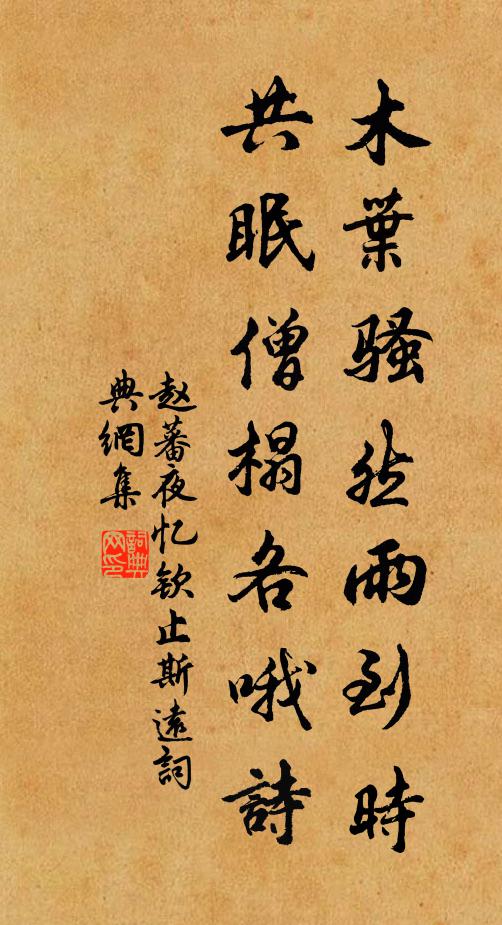 木葉騷然雨到時
共眠僧榻各哦詩
赵蕃夜忆欽止斯遠詞
典網集
詞典
网印